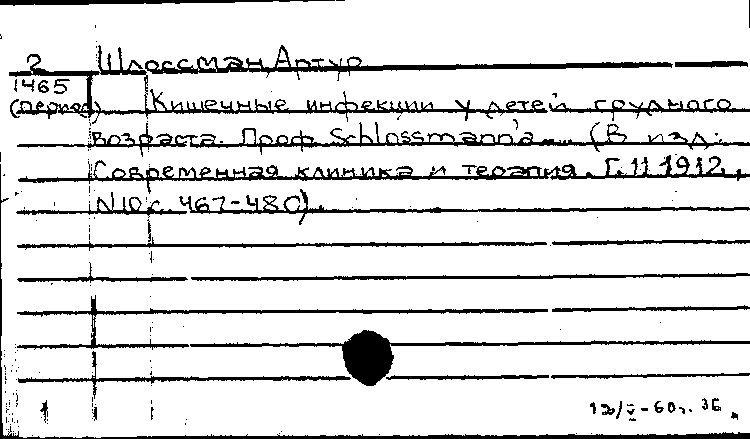 2 Шлоссман, Артур
1465
(период) Кишечные инфекции у детей грудного
возраста. Проф. Schlossmann'a... (В изд.:
Современная клиника и терапия. Г. 11 1912,
N10 с. 467-480).